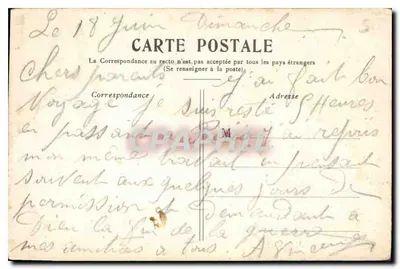 Le 18 Juin Dimanche
5
CARTE POSTALE
La Correspondance au recto n'est pas acceptée par tous les pays étrangers
(Se renseigner à la poste)
chers parents j'ai fait bon
Correspondance Adresse
Voyage je suis resté 5 Heures
en passant j'ai repris
mon même travail en pensant
souvent aux quelques jours de
permission et demandant à
Dieu la fin de la guerre
mes amitiés à tous.